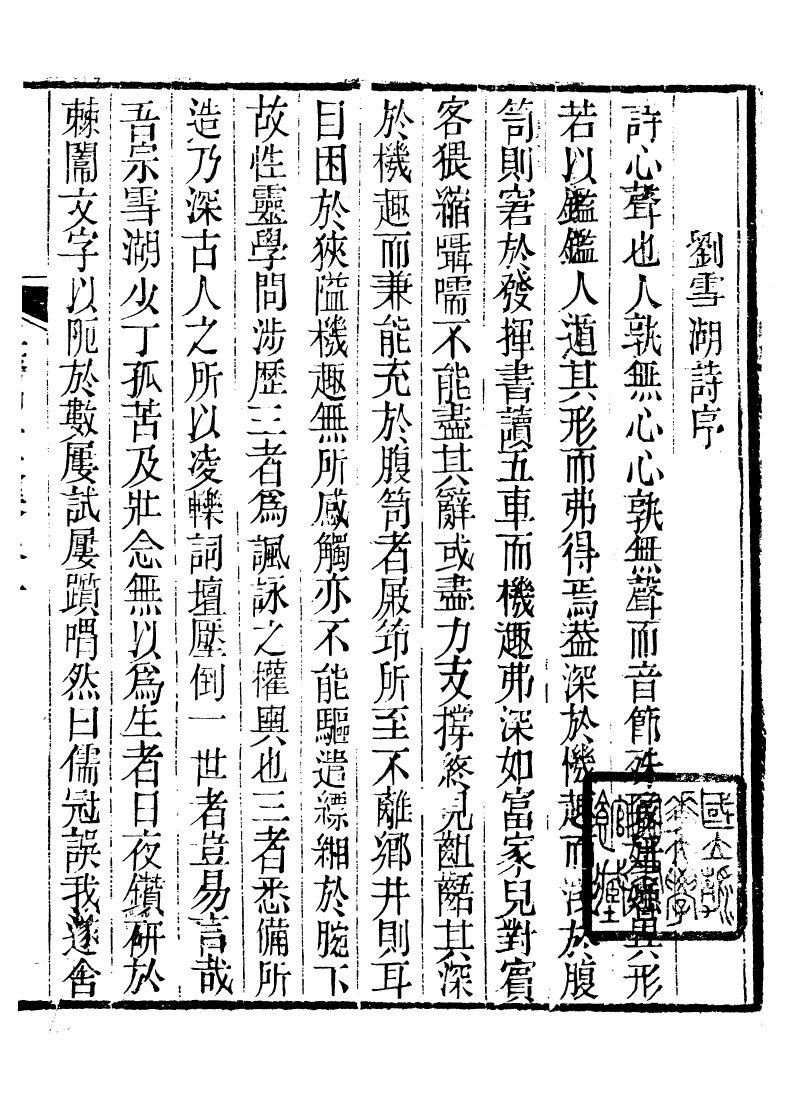 劉雪湖詩序
詩心聲也人孰無心心孰無聲而音節殊異形
若以鑑鑑人遁其形而弗得焉葢深於機趣而於腹
笥則窘於發揮書讀五車而機趣弗深如富家兒對賓
客猥縮囁嚅不能盡其辭或盡力支撐終見齟齬其深
於機趣而兼能充於腹笥者屐笻所至不離鄉井則耳
目困於狹隘機趣無所感觸亦不能驅遣縹緗於腕下
故性靈學問涉歷三者爲諷詠之權輿也三者悉備所
造乃深古人之所以凌轢詞壇壓倒一世者豈易言哉
吾宗雪湖少丁孤苦及壯念無以爲生者日夜鑽研於
棘闈文字以阨於數屢試屢躓喟然曰儒冠誤我遂舍
國立